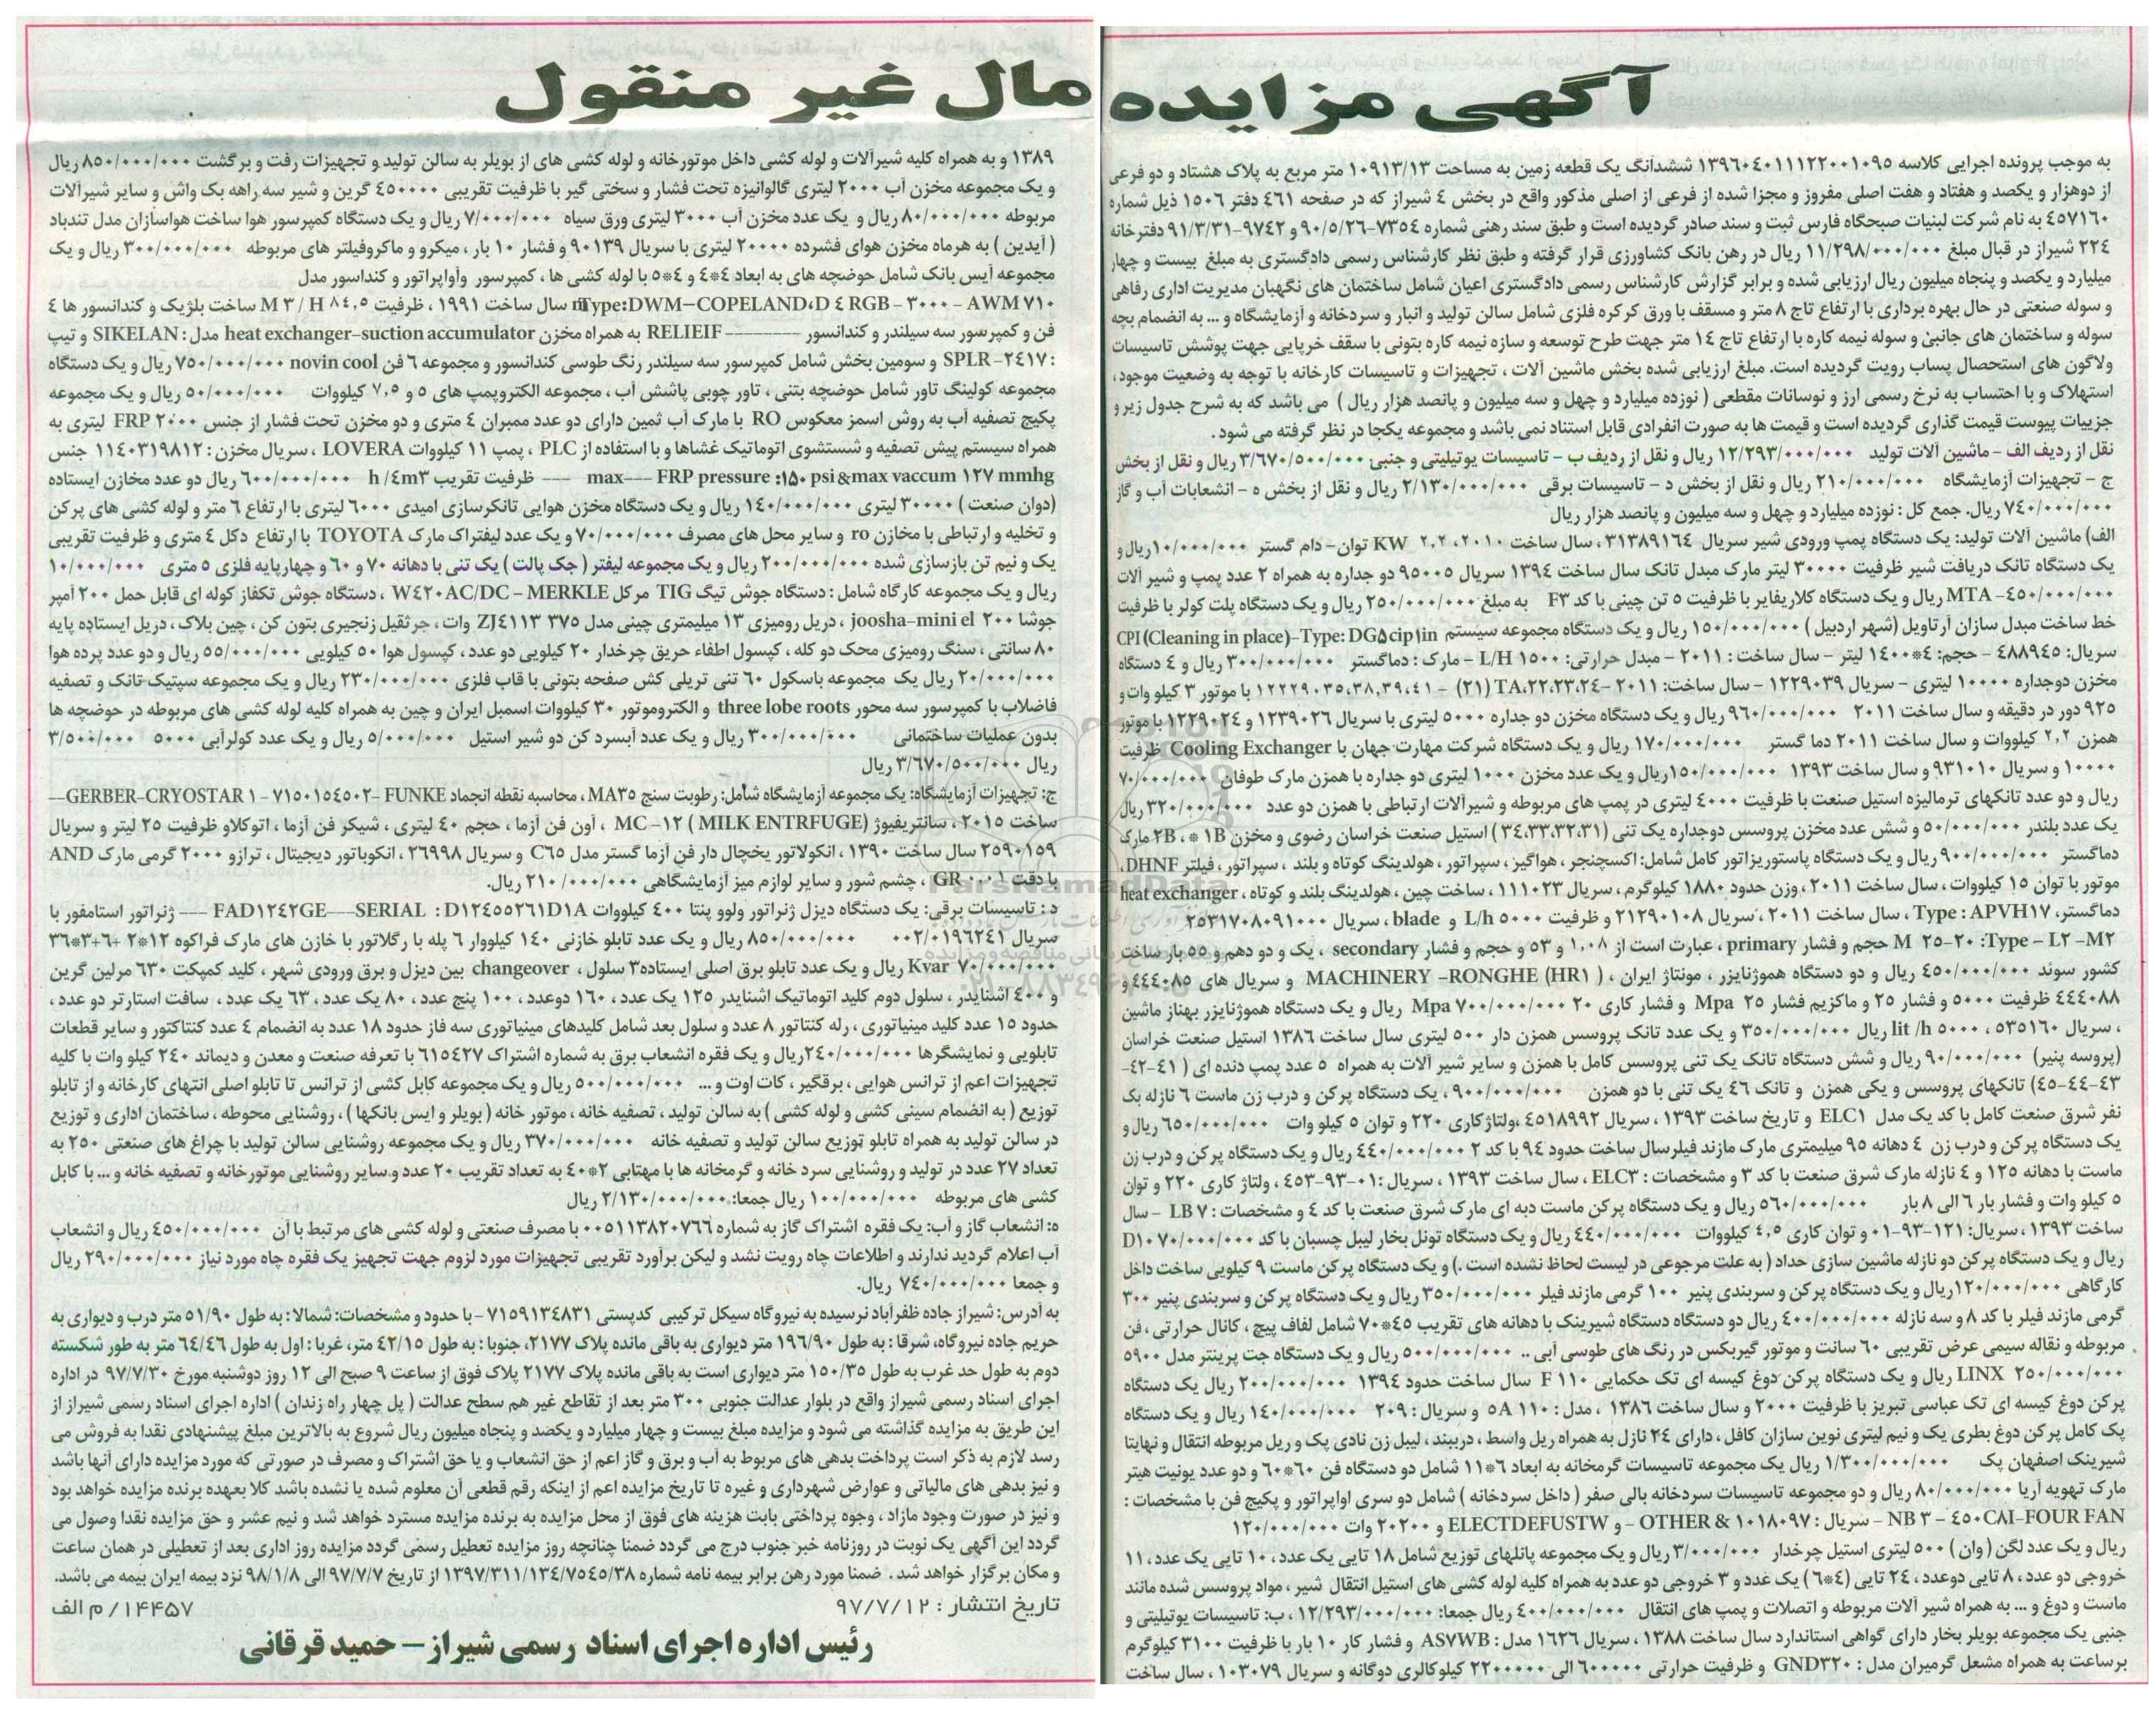 آگهی مزایده مال غیر منقول
به موجب پرونده اجرایی کلاسه ۱۳۹۶۰۴۰۱۱۱۲۲۰۰۱۰۹۵ ششدانگ یک قطعه زمین به مساحت ۱۰۹۱۳/۱۳ متر مربع به پلاک هشتاد و دو فرعی
از دوهزار و یکصد و هفتاد و هفت اصلی مفروز و مجزا شده از فرعی از اصلی مذکور واقع در بخش ۴ شیراز که در صفحه ۴۶۱ دفتر ۱۵۰۶ ذیل شماره
۴۵۷۱۶۰ به نام شرکت لبنیات صبحگاه فارس ثبت و سند صادر گردیده است و طبق سند رهنی شماره ۷۳۵۴-۹۰/۵/۲۶ و ۹۷۴۲-۹۱/۳/۳۱ دفترخانه
۲۲۴ شیراز در قبال مبلغ ۱۱/۲۹۸/۰۰۰/۰۰۰ ریال در رهن بانک کشاورزی قرار گرفته و طبق نظر کارشناس رسمی دادگستری به مبلغ بیست و چهار
میلیارد و یکصد و پنجاه میلیون ریال ارزیابی شده و برابر گزارش کارشناس رسمی دادگستری اعیان شامل ساختمان های نگهبان مدیریت اداری رفاهی
و سوله صنعتی در حال بهره برداری با ارتفاع تاج ۸ متر و مسقف با ورق کرکره فلزی شامل سالن تولید و انبار و سردخانه و آزمایشگاه و ... به انضمام بچه
سوله و ساختمان های جانبی و سوله نیمه کاره با ارتفاع تاج ۱۴ متر جهت طرح توسعه و سازه نیمه کاره بتونی با سقف خرپایی جهت پوشش تاسیسات
ولاگون های استحصال پساب رویت گردیده است. مبلغ ارزیابی شده بخش ماشین آلات ، تجهیزات و تاسیسات کارخانه با توجه به وضعیت موجود،
استهلاک و با احتساب به نرخ رسمی ارز و نوسانات مقطعی ( نوزده میلیارد و چهل و سه میلیون و پانصد هزار ریال ) می باشد که به شرح جدول زیر و
جزییات پیوست قیمت گذاری گردیده است و قیمت ها به صورت انفرادی قابل استناد نمی باشد و مجموعه یکجا در نظر گرفته می شود .
نقل از ردیف الف - ماشین آلات تولید ۱۲/۲۹۳/۰۰۰/۰۰۰ ریال و نقل از ردیف ب - تاسیسات یوتیلیتی و جنبی ۳/۶۷۰/۵۰۰/۰۰۰ ریال و نقل از بخش
ج - تجهیزات آزمایشگاه ۲۱۰/۰۰۰/۰۰۰ ریال و نقل از بخش د - تاسیسات برقی ۲/۱۳۰/۰۰۰/۰۰۰ ریال و نقل از بخش ه - انشعابات آب و گاز
۷۴۰/۰۰۰/۰۰۰ ریال. جمع کل : نوزده میلیارد و چهل و سه میلیون و پانصد هزار ریال
الف) ماشین آلات تولید: یک دستگاه پمپ ورودی شیر سریال ۳۱۳۸۹۱۶۴ ، سال ساخت ۲۰۱۰ ، ۲,۲ KW توان- دام گستر ۱۰/۰۰۰/۰۰۰ ریال و
یک دستگاه تانک دریافت شیر ظرفیت ۳۰۰۰۰ لیتر مارک مبدل تانک سال ساخت ۱۳۹۴ سریال ۹۵۰۰۵ دو جداره به همراه ۲ عدد پمپ و شیر آلات
۴۵۰/۰۰۰/۰۰۰- MTA ریال و یک دستگاه کلاریفایر با ظرفیت ۵ تن چینی با کد F۳ به مبلغ ۲۵۰/۰۰۰/۰۰۰ ریال و یک دستگاه پلت کولر با ظرفیت
خط ساخت مبدل سازان آرتاویل (شهر اردبیل ) ۱۵۰/۰۰۰/۰۰۰ ریال و یک دستگاه مجموعه سیستم CPI (Cleaning in place)-Type: DG۵cip۱in
سریال: ۴۸۸۹۴۵ - حجم: ۴*۱۴۰۰ لیتر - سال ساخت : ۲۰۱۱ - مبدل حرارتی: L/H ۱۵۰۰ - مارک : دماگستر ۳۰۰/۰۰۰/۰۰۰ ریال و ۴ دستگاه
مخزن دوجداره ۱۰۰۰۰ لیتری - سریال ۱۲۲۹۰۳۹ - سال ساخت: ۲۰۱۱ -TA،۲۲،۲۳،۲۴ (۲۱) - ۱۲۲۲۹۰۳۵،۳۸,۳۹،۴۱ با موتور ۳ کیلو وات و
۹۲۵ دور در دقیقه و سال ساخت ۲۰۱۱ ۹۶۰/۰۰۰/۰۰۰ ریال و یک دستگاه مخزن دو جداره ۵۰۰۰ لیتری با سریال ۱۲۳۹۰۲۶ و ۱۲۲۹۰۲۴ با موتور
همزن ۲,۲ کیلووات و سال ساخت ۲۰۱۱ دما گستر ۱۷۰/۰۰۰/۰۰۰ ریال و یک دستگاه شرکت مهارت جهان با Cooling Exchanger ظرفیت
۱۰۰۰۰ و سریال ۹۳۱۰۱۰ و سال ساخت ۱۳۹۳ ۱۵۰/۰۰۰/۰۰۰ریال و یک عدد مخزن ۱۰۰۰ لیتری دو جداره با همزن مارک طوفان ۷۰/۰۰۰/۰۰۰
ریال و دو عدد تانکهای ترمالیزه استیل صنعت با ظرفیت ۴۰۰۰ لیتری در پمپ های مربوطه و شیرآلات ارتباطی با همزن دو عدد ۳۲۰/۰۰۰/۰۰۰ ریال
یک عدد بلندر ۵۰/۰۰۰/۰۰۰ و شش عدد مخزن پروسس دوجداره یک تنی (۳۴،۳۳،۳۲،۳۱) استیل صنعت خراسان رضوی و مخزن ۱B ، ۲B مارک
دماگستر ۹۰۰/۰۰۰/۰۰۰ ریال و یک دستگاه پاستوریزاتور کامل شامل: اکسچنجر ، هواگیز ، سپراتور ، هولدینگ کوتاه و بلند ، سپراتور ، فیلتر DHNF،
موتور با توان ۱۵ کیلووات ، سال ساخت ۲۰۱۱ ، وزن حدود ۱۸۸۰ کیلوگرم ، سریال ۱۱۱۰۲۳ ، ساخت چین ، هولدینگ بلند و کوتاه ، heat exchanger
دماگستر، Type : APVH۱۷ ، سال ساخت ۲۰۱۱ ، سریال ۲۱۲۹۰۱۰۸ و ظرفیت L/h ۵۰۰۰ و blade ، سریال ۲۵۳۱۷۰۸۰۹۱۰۰۰
M ۲۵-۲۰ :Type - L۲ -M۲ حجم و فشار primary ، عبارت است از ۱,۰۸ و ۵۳ و حجم و فشار secondary ، یک و دو دهم و ۵۵ بار ساخت
کشور سوئد ۴۵۰/۰۰۰/۰۰۰ ریال و دو دستگاه هموژنایزر ، مونتاژ ایران ، ( MACHINERY -RONGHE (HR۱ و سریال های ۴۴۴۰۸۵ و
۴۴۴۰۸۸ ظرفیت ۵۰۰۰ و فشار ۲۵ و ماکزیم فشار ۲۵ Mpa و فشار کاری ۲۰ Mpa ۷۰۰/۰۰۰/۰۰۰ ریال و یک دستگاه هموژنایزر بهناز ماشین
، سریال ۵۳۵۱۶۰ ، lit /h ۵۰۰۰ ریال ۳۵۰/۰۰۰/۰۰۰ و یک عدد تانک پروسس همزن دار ۵۰۰ لیتری سال ساخت ۱۳۸۶ استیل صنعت خراسان
(پروسه پنیر) ۹۰/۰۰۰/۰۰۰ ریال و شش دستگاه تانک یک تنی پروسس کامل با همزن و سایر شیر آلات به همراه ۵ عدد پمپ دنده ای ( ۴۱-۴۲-
۴۳-۴۴-۴۵) تانکهای پروسس و یکی همزن و تانک ۴۶ یک تنی با دو همزن ۹۰۰/۰۰۰/۰۰۰ ، یک دستگاه پرکن و درب زن ماست ۶ نازله بک
نفر شرق صنعت کامل با کد یک مدل ELC۱ و تاریخ ساخت ۱۳۹۳ ، سریال ۴۵۱۸۹۹۲ ،ولتاژکاری ۲۲۰ و توان ۵ کیلو وات ۶۵۰/۰۰۰/۰۰۰ ریال و
یک دستگاه پرکن و درب زن ۴ دهانه ۹۵ میلیمتری مارک مازند فیلرسال ساخت حدود ۹۴ با کد ۲ ۴۴۰/۰۰۰/۰۰۰ ریال و یک دستگاه پر کن و درب زن
ماست با دهانه ۱۲۵ و ۴ نازله مارک شرق صنعت با کد ۳ و مشخصات : ELC۳ ، سال ساخت ۱۳۹۳ ، سریال :۰۱-۹۳-۴۵۳ ، ولتاژ کاری ۲۲۰ و توان
۵ کیلو وات و فشار بار ۶ الی ۸ بار ۵۶۰/۰۰۰/۰۰۰ ریال و یک دستگاه پرکن ماست دبه ای مارک شرق صنعت با کد ۴ و مشخصات : LB ۷ - سال
ساخت ۱۳۹۳ ، سریال: ۱۲۱-۹۳-۰۱ و توان کاری ۴,۵ کیلووات ۴۴۰/۰۰۰/۰۰۰ ریال و یک دستگاه تونل بخار لیبل چسبان با کد D۱۰ ۷۰/۰۰۰/۰۰۰
ریال و یک دستگاه پرکن دو نازله ماشین سازی حداد ( به علت مرجوعی در لیست لحاظ نشده است .) و یک دستگاه پرکن ماست ۹ کیلویی ساخت داخل
کارگاهی ۱۲۰/۰۰۰/۰۰۰ریال و یک دستگاه پرکن و سربندی پنیر ۱۰۰ گرمی مازند فیلر ۳۵۰/۰۰۰/۰۰۰ ریال و یک دستگاه پرکن و سربندی پنیر ۳۰۰
گرمی مازند فیلر با کد ۸ و سه نازله ۴۰۰/۰۰۰/۰۰۰ ریال دو دستگاه دستگاه شیرینک با دهانه های تقریب ۴۵*۷۰ شامل لفاف پیچ ، کانال حرارتی ، فن
مربوطه و نقاله سیمی عرض تقریبی ۶۰ سانت و موتور گیربکس در رنگ های طوسی آبی .. ۵۰۰/۰۰۰/۰۰۰ ریال و یک دستگاه جت پرینتر مدل ۵۹۰۰
LINX ۲۵۰/۰۰۰/۰۰۰ ریال و یک دستگاه پرکن دوغ کیسه ای تک حکمایی F ۱۱۰ سال ساخت حدود ۱۳۹۴ ۲۰۰/۰۰۰/۰۰۰ ریال یک دستگاه
پرکن دوغ کیسه ای تک عباسی تبریز با ظرفیت ۲۰۰۰ و سال ساخت ۱۳۸۶ ، مدل : ۵A ۱۱۰ و سریال : ۲۰۹ ۱۴۰/۰۰۰/۰۰۰ ریال و یک دستگاه
پک کامل پرکن دوغ بطری یک و نیم لیتری نوین سازان کافل ، دارای ۲۴ نازل به همراه ریل واسط ، دربیند ، لیبل زن نادی پک و ریل مربوطه انتقال و نهایتا
شیرینک اصفهان پک ۱/۳۰۰/۰۰۰/۰۰۰ ریال یک مجموعه تاسیسات گرمخانه به ابعاد ۶*۱۱ شامل دو دستگاه فن ۶۰*۶۰ و دو عدد یونیت هیتر
مارک تهویه آریا ۸۰/۰۰۰/۰۰۰ ریال و دو مجموعه تاسیسات سردخانه بالی صفر ( داخل سردخانه ) شامل دو سری اواپراتور و پکیج فن با مشخصات :
NB ۳ - ۴۵۰C۸I-FOUR FAN - سریال : ۱۰۱۸۰۹۷ & OTHER - و ELECTDEFUSTW و ۲۰۲۰۰ وات ۱۲۰/۰۰۰/۰۰۰
ریال و یک عدد لگن ( وان ) ۵۰۰ لیتری استیل چرخدار ۳/۰۰۰/۰۰۰ ریال و یک مجموعه پانلهای توزیع شامل ۱۸ تایی یک عدد ، ۱۰ تایی یک عدد ، ۱۱
خروجی دو عدد ، ۸ تایی دوعدد ، ۲۴ تایی (۴*۶ ) یک عدد و ۳ خروجی دو عدد به همراه کلیه لوله کشی های استیل انتقال شیر ، مواد پروسس شده مانند
ماست و دوغ و ... به همراه شیر آلات مربوطه و اتصلات و پمپ های انتقال ۴۰۰/۰۰۰/۰۰۰ ریال جمعا: ۱۲/۲۹۳/۰۰۰/۰۰۰ ، ب: تاسیسات یوتیلیتی و
جنبی یک مجموعه بویلر بخار دارای گواهی استاندارد سال ساخت ۱۳۸۸ ، سریال ۱۶۲۶ مدل : AS۷WB و فشار کار ۱۰ بار با ظرفیت ۳۱۰۰ کیلوگرم
برساعت به همراه مشعل گرمیران مدل : GND۳۲۰ و ظرفیت حرارتی ۶۰۰۰۰۰ الی ۲۲۰۰۰۰۰ کیلوکالری دوگانه و سریال ۱۰۳۰۷۹ ، سال ساخت
۱۳۸۹ و به همراه کلیه شیرآلات و لوله کشی داخل موتورخانه و لوله کشی های از بویلر به سالن تولید و تجهیزات رفت و برگشت ۸۵۰/۰۰۰/۰۰۰ ریال
و یک مجموعه مخزن آب ۲۰۰۰ لیتری گالوانیزه تحت فشار و سختی گیر با ظرفیت تقریبی ۴۵۰۰۰۰ گرین و شیر سه راهه بک واش و سایر شیرآلات
مربوطه ۸۰/۰۰۰/۰۰۰ ریال و یک عدد مخزن آب ۳۰۰۰ لیتری ورق سیاه ۷/۰۰۰/۰۰۰ ریال و یک دستگاه کمپرسور هوا ساخت هواسازان مدل تندباد
( آیدین ) به هرماه مخزن هوای فشرده ۲۰۰۰۰ لیتری با سریال ۹۰۱۳۹ و فشار ۱۰ بار ، میکرو و ماکروفیلتر های مربوطه ۳۰۰/۰۰۰/۰۰۰ ریال و یک
مجموعه آیس بانک شامل حوضچه های به ابعاد ۴*۴ و ۴*۵ با لوله کشی ها ، کمپرسور وآواپراتور و کنداسور مدل
Type:DWM-COPELAND،D ۴ RGB - ۳۰۰۰ - AWM ۷۱۰ سال ساخت ۱۹۹۱ ، ظرفیت ۸۴,۵ M ۳ / H ساخت بلژیک و کندانسور ها ۴
فن و کمپرسور سه سیلندر و کندانسور --------RELIEIF به همراه مخزن heat exchanger-suction accumulator مدل : SIKELAN و تیپ
: SPLR -۲۴۱۷ و سومین بخش شامل کمپرسور سه سیلندر رنگ طوسی کندانسور و مجموعه ۶ فن novin cool ۷۵۰/۰۰۰/۰۰۰ ریال و یک دستگاه
مجموعه کولینگ تاور شامل حوضچه بتنی ، تاور چوبی پاشش آب ، مجموعه الکتروپمپ های ۵ و ۷,۵ کیلووات ۵۰/۰۰۰/۰۰۰ ریال و یک مجموعه
پکیج تصفیه آب به روش اسمز معکوس RO با مارک آب ثمین دارای دو عدد ممبران ۴ متری و دو مخزن تحت فشار از جنس FRP ۲۰۰۰ لیتری به
همراه سیستم پیش تصفیه و شستشوی اتوماتیک غشاها و با استفاده از PLC ، پمپ ۱۱ کیلووات LOVERA ، سریال مخزن : ۱۱۴۰۳۱۹۸۱۲ جنس
max--- FRP pressure :۱۵۰ psi &max vaccum ۱۲۷ mmhg --- ظرفیت تقریب h /۴m۳ ۶۰۰/۰۰۰/۰۰۰ ریال دو عدد مخازن ایستاده
(دوان صنعت ) ۳۰۰۰۰ لیتری ۱۴۰/۰۰۰/۰۰۰ ریال و یک دستگاه مخزن هوایی تانکرسازی امیدی ۶۰۰۰ لیتری با ارتفاع ۶ متر و لوله کشی های پرکن
و تخلیه و ارتباطی با مخازن ro و سایر محل های مصرف ۷۰/۰۰۰/۰۰۰ و یک عدد لیفتراک مارک TOYOTA با ارتفاع دکل ۴ متری و ظرفیت تقریبی
یک و نیم تن بازسازی شده ۲۰۰/۰۰۰/۰۰۰ ریال و یک مجموعه لیفتر ( جک پالت ) یک تنی با دهانه ۷۰ و ۶۰ و چهارپایه فلزی ۵ متری ۱۰/۰۰۰/۰۰۰
ریال و یک مجموعه کارگاه شامل : دستگاه جوش تیگ TIG مرکل W۴۲۰ AC/DC - MERKLE ، دستگاه جوش تکفاز کوله ای قابل حمل ۲۰۰ آمپر
جوشا ۲۰۰ joosha-mini el ، دریل رومیزی ۱۳ میلیمتری چینی مدل ZJ۴۱۱۳ ۳۷۵ وات ، جرثقیل زنجیری بتون کن ، چین بلاک ، دریل ایستاده پایه
۸۰ سانتی ، سنگ رومیزی محک دو کله ، کپسول اطفاء حریق چرخدار ۲۰ کیلویی دو عدد ، کپسول هوا ۵۰ کیلویی ۵۵/۰۰۰/۰۰۰ ریال و دو عدد پرده هوا
۲۰/۰۰۰/۰۰۰ ریال یک مجموعه باسکول ۶۰ تنی تریلی کش صفحه بتونی با قاب فلزی ۲۳۰/۰۰۰/۰۰۰ ریال و یک مجموعه سپتیک تانک و تصفیه
فاضلاب با کمپرسور سه محور three lobe roots و الکتروموتور ۳۰ کیلووات اسمبل ایران و چین به همراه کلیه لوله کشی های مربوطه در حوضچه ها
بدون عملیات ساختمانی ۳۰۰/۰۰۰/۰۰۰ ریال و یک عدد آبسرد کن دو شیر استیل ۵/۰۰۰/۰۰۰ ریال و یک عدد کولرآبی ۵۰۰۰ ۳/۵۰۰/۰۰۰
ریال ۳/۶۷۰/۵۰۰/۰۰۰ ریال
ج: تجهیزات آزمایشگاه: یک مجموعه آزمایشگاه شامل: رطوبت سنج MA۳۵ ، محاسبه نقطه انجماد GERBER-CRYOSTAR ۱ - ۷۱۵۰۱۵۴۵۰۲- FUNKE--
ساخت ۲۰۱۵ ، سانتریفیوژ (MC -۱۲ ( MILK ENTRFUGE ، آون فن آزما ، حجم ۴۰ لیتری ، شیکر فن آزما ، اتوکلاو ظرفیت ۲۵ لیتر و سریال
۲۵۹۰۱۵۹ سال ساخت ۱۳۹۰ ، انکولاتور یخچال دار فن آزما گستر مدل C۶۵ و سریال ۲۶۹۹۸ ، انکوباتور دیجیتال ، ترازو ۲۰۰۰ گرمی مارک AND
با دقت GR ۰,۰۰۱ ، چشم شور و سایر لوازم میز آزمایشگاهی ۲۱۰ /۰۰۰/۰۰۰ ریال.
د : تاسیسات برقی: یک دستگاه دیزل ژنراتور ولوو پنتا ۴۰۰ کیلووات FAD۱۲۴۲GE---SERIAL : D۱۲۴۵۵۲۶۱D۱A --- ژنراتور استامفور با
سریال ۰۰۲/۰۱۹۶۲۴۱ ۸۵۰/۰۰۰/۰۰۰ ریال و یک عدد تابلو خازنی ۱۴۰ کیلووار ۶ پله با رگلاتور با خازن های مارک فراکوه ۱۲*۲ +۶+۳*۳۶
Kvar ۷۰/۰۰۰/۰۰۰ ریال و یک عدد تابلو برق اصلی ایستاده۳ سلول ، changeover بین دیزل و برق ورودی شهر ، کلید کمپکت ۶۳۰ مرلین گرین
و ۴۰۰ اشنایدر ، سلول دوم کلید اتوماتیک اشنایدر ۱۲۵ یک عدد ، ۱۶۰ دوعدد ، ۱۰۰ پنج عدد ، ۸۰ یک عدد ، ۶۳ یک عدد ، سافت استارتر دو عدد ،
حدود ۱۵ عدد کلید مینیاتوری ، رله کنتاتور ۸ عدد و سلول بعد شامل کلیدهای مینیاتوری سه فاز حدود ۱۸ عدد به انضمام ۴ عدد کنتاکتور و سایر قطعات
تابلویی و نمایشگرها ۲۴۰/۰۰۰/۰۰۰ریال و یک فقره انشعاب برق به شماره اشتراک ۶۱۵۴۲۷ با تعرفه صنعت و معدن و دیماند ۲۴۰ کیلو وات با کلیه
تجهیزات اعم از ترانس هوایی ، برقگیر ، کات اوت و ... ۵۰۰/۰۰۰/۰۰۰ ریال و یک مجموعه کابل کشی از ترانس تا تابلو اصلی انتهای کارخانه و از تابلو
توزیع ( به انضمام سینی کشی و لوله کشی ) به سالن تولید ، تصفیه خانه ، موتور خانه ( بویلر و ایس بانکها ) ، روشنایی محوطه ، ساختمان اداری و توزیع
در سالن تولید به همراه تابلو توزیع سالن تولید و تصفیه خانه ۳۷۰/۰۰۰/۰۰۰ ریال و یک مجموعه روشنایی سالن تولید با چراغ های صنعتی ۲۵۰ به
تعداد ۲۷ عدد در تولید و روشنایی سرد خانه و گرمخانه ها با مهتابی ۲*۴۰ به تعداد تقریب ۲۰ عدد و.سایر روشنایی موتورخانه و تصفیه خانه و ... با کابل
کشی های مربوطه ۱۰۰/۰۰۰/۰۰۰ ریال جمعا: ۲/۱۳۰/۰۰۰/۰۰۰ ریال
ه: انشعاب گاز و آب: یک فقره اشتراک گاز به شماره ۰۰۵۱۱۳۸۲۰۷۶۶ با مصرف صنعتی و لوله کشی های مرتبط با آن ۴۵۰/۰۰۰/۰۰۰ ریال و انشعاب
آب اعلام گردید ندارند و اطلاعات چاه رویت نشد و لیکن برآورد تقریبی تجهیزات مورد لزوم جهت تجهیز یک فقره چاه مورد نیاز ۲۹۰/۰۰۰/۰۰۰ ریال
و جمعا ۷۴۰/۰۰۰/۰۰۰ ریال.
به آدرس: شیراز جاده ظفرآباد نرسیده به نیروگاه سیکل ترکیبی کدپستی ۷۱۵۹۱۳۴۸۳۱ - با حدود و مشخصات: شمالا : به طول ۵۱/۹۰ متر درب و دیواری به
حریم جاده نیروگاه، شرقا : به طول ۱۹۶/۹۰ متر دیواری به باقی مانده پلاک ۲۱۷۷، جنوبا : به طول ۴۲/۱۵ متر، غربا : اول به طول ۶۴/۴۶ متر به طور شکسته
دوم به طول حد غرب به طول ۱۵۰/۳۵ متر دیواری است به باقی مانده پلاک ۲۱۷۷ پلاک فوق از ساعت ۹ صبح الی ۱۲ روز دوشنبه مورخ ۹۷/۷/۳۰ در اداره
اجرای اسناد رسمی شیراز واقع در بلوار عدالت جنوبی ۳۰۰ متر بعد از تقاطع غیر هم سطح عدالت ( پل چهار راه زندان ) اداره اجرای اسناد رسمی شیراز از
این طریق به مزایده گذاشته می شود و مزایده مبلغ بیست و چهار میلیارد و یکصد و پنجاه میلیون ریال شروع به بالاترین مبلغ پیشنهادی نقدا به فروش می
رسد لازم به ذکر است پرداخت بدهی های مربوط به آب و برق و گاز اعم از حق انشعاب و یا حق اشتراک و مصرف در صورتی که مورد مزایده دارای آنها باشد
و نیز بدهی های مالیاتی و عوارض شهرداری و غیره تا تاریخ مزایده اعم از اینکه رقم قطعی آن معلوم شده یا نشده باشد کلا بعهده برنده مزایده خواهد بود
و نیز در صورت وجود مازاد ، وجوه پرداختی بابت هزینه های فوق از محل مزایده به برنده مزایده مسترد خواهد شد و نیم عشر و حق مزایده نقدا وصول می
گردد این آگهی یک نوبت در روزنامه خبر جنوب درج می گردد ضمنا چنانچه روز مزایده تعطیل رسمی گردد مزایده روز اداری بعد از تعطیلی در همان ساعت
و مکان برگزار خواهد شد . ضمنا مورد رهن برابر بیمه نامه شماره ۱۳۹۷/۳۱۱/۱۳۴/۷۵۴۵/۳۸ از تاریخ ۹۷/۷/۷ الی ۹۸/۱/۸ نزد بیمه ایران بیمه می باشد.
تاریخ انتشار : ۹۷/۷/۱۲
۱۴۴۵۷/ م الف
رئیس اداره اجرای اسناد رسمی شیراز - حمید قرقانی